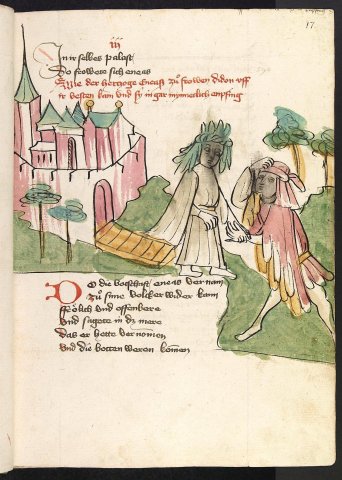 17.
iiij
In ir selbes palast
Do frowete sich eneas
Wie der herzoge Eneas zů frowen didon uff
ir vesten kam und sy in gar mynneclich enpfing
Do die botschaft eneas vernam
zů sime volcke er wider kam
frölich und offenbere
Und sagete in dz mere
Das er hette vernomen
Und die botten weren komen